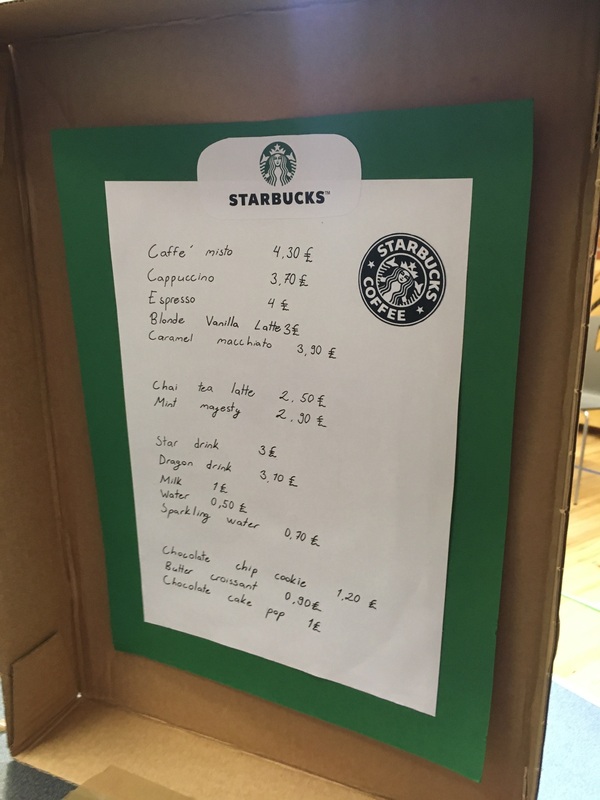 STARBUCKS™
STARBUCKS
COFFEE
Caffe´ misto 4,30 £
Cappuccino 3,70 £
Espresso 4 £
Blonde Vanilla Latte 3£
Caramel macchiato 3,90 £
Chai tea latte 2.50 £
Mint majesty 2.90 £
Star drink 3£
Dragon drink 3,10 £
Milk 1£
Water 0,50 £
Sparkling water 0,70 £
Chocolate chip cookie 1,20 £
Butter croissant 0,90£
Chocolate cake pop 1£